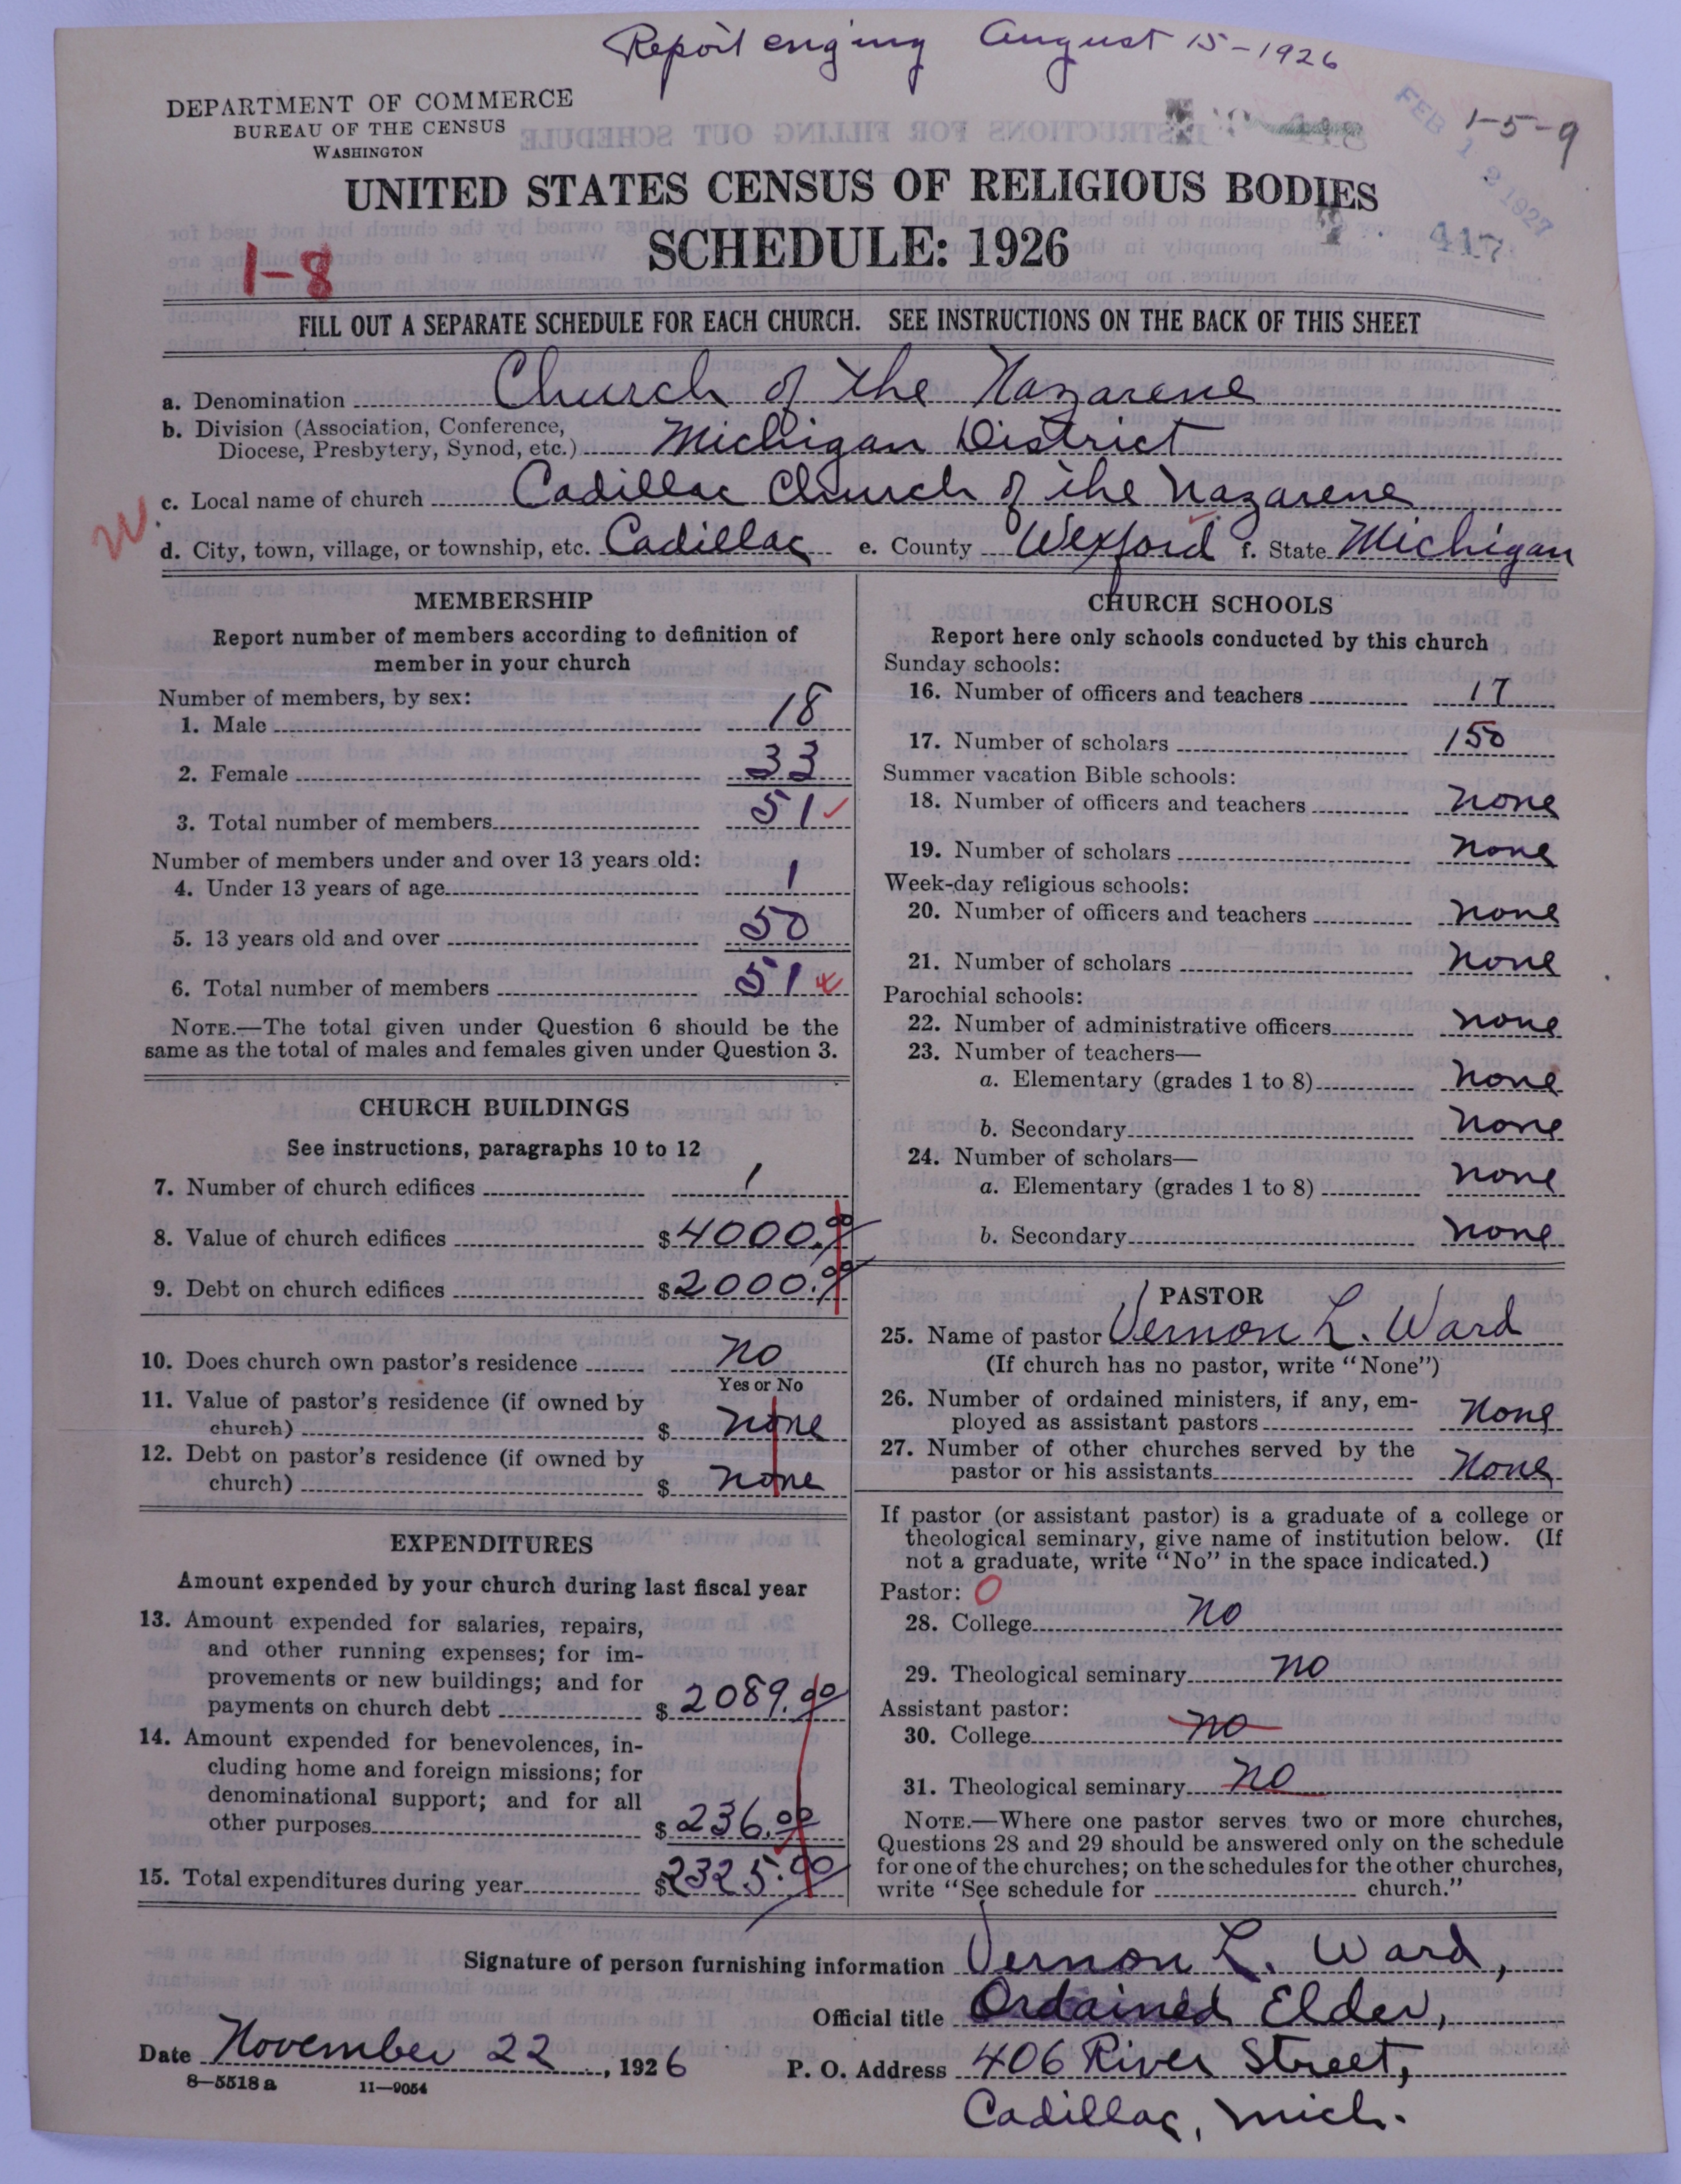 Report enging August 15-1926
DEPARTMENT OF COMMERCE
BUREAU OF THE CENSUS
WASHINGTON
FEB 12 1927
1-5-9
UNITED STATES CENSUS OF RELIGIOUS BODIES
SCHEDULE: 1926
417
1-8
FILL OUT A SEPARATE SCHEDULE FOR EACH CHURCH. SEE INSTRUCTIONS ON THE BACK OF THIS SHEET
a. Denomination Church of the Nazarene
b. Division (Association, Conference,
Diocese, Presbytery, Synod, etc.) Michigan District
c. Local name of church Cadillac Church of the Nazarene
W
d. City, town, village, or township, etc. Cadillac e. County Wexford f. State Michigan
MEMBERSHIP
Report number of members according to definition of
member in your church
Number of members, by sex:
1. Male 18
2. Female 33
3. Total number of members 51
Number of members under and over 13 years old:
4. Under 13 years of age 1
5. 13 years old and over 50
6. Total number of members 51
NOTE.—The total given under Question 6 should be the
same as the total of males and females given under Question 3.
CHURCH BUILDINGS
See instructions, paragraphs 10 to 12
7. Number of church edifices 1
8. Value of church edifices $4000.00
9. Debt on church edifices $2000.00
10. Does church own pastor's residence no
Yes or No
11. Value of pastor's residence (if owned by
church) $ none
12. Debt on pastor's residence (if owned by
church) $ none
EXPENDITURES
Amount expended by your church during last fiscal year
13. Amount expended for salaries, repairs,
and other running expenses; for im-
provements or new buildings; and for
payments on church debt $ 2089.00
14. Amount expended for benevolences, in-
cluding home and foreign missions; for
denominational support; and for all
other purposes $ 236.00
15. Total expenditures during year $2325.00
CHURCH SCHOOLS
Report here only schools conducted by this church
Sunday schools:
16. Number of officers and teachers 17
17. Number of scholars 150
Summer vacation Bible schools:
18. Number of officers and teachers none
19. Number of scholars none
Week-day religious schools:
20. Number of officers and teachers none
21. Number of scholars none
Parochial schools:
22. Number of administrative officers none
23. Number of teachers—
a. Elementary (grades 1 to 8) none
b. Secondary none
24. Number of scholars—
a. Elementary (grades 1 to 8) none
b. Secondary none
PASTOR
25. Name of pastor Vernon L. Ward
(If church has no pastor, write "None")
26. Number of ordained ministers, if any, em-
ployed as assistant pastors None
27. Number of other churches served by the
pastor or his assistants None
If pastor (or assistant pastor) is a graduate of a college or
theological seminary, give name of institution below. (If
not a graduate, write "No" in the space indicated.)
Pastor: 0
28. College no
29. Theological seminary no
Assistant pastor:
30. College no
31. Theological seminary no
NOTE.—Where one pastor serves two or more churches,
Questions 28 and 29 should be answered only on the schedule
for one of the churches; on the schedules for the other churches,
write "See schedule for church."
Signature of person furnishing information Vernon L. Ward,
Official title Ordained Elder,
Date November 22, 1926 P. O. Address 406 River Street,
8—5518 a 11—9054
Cadillac, Mich.